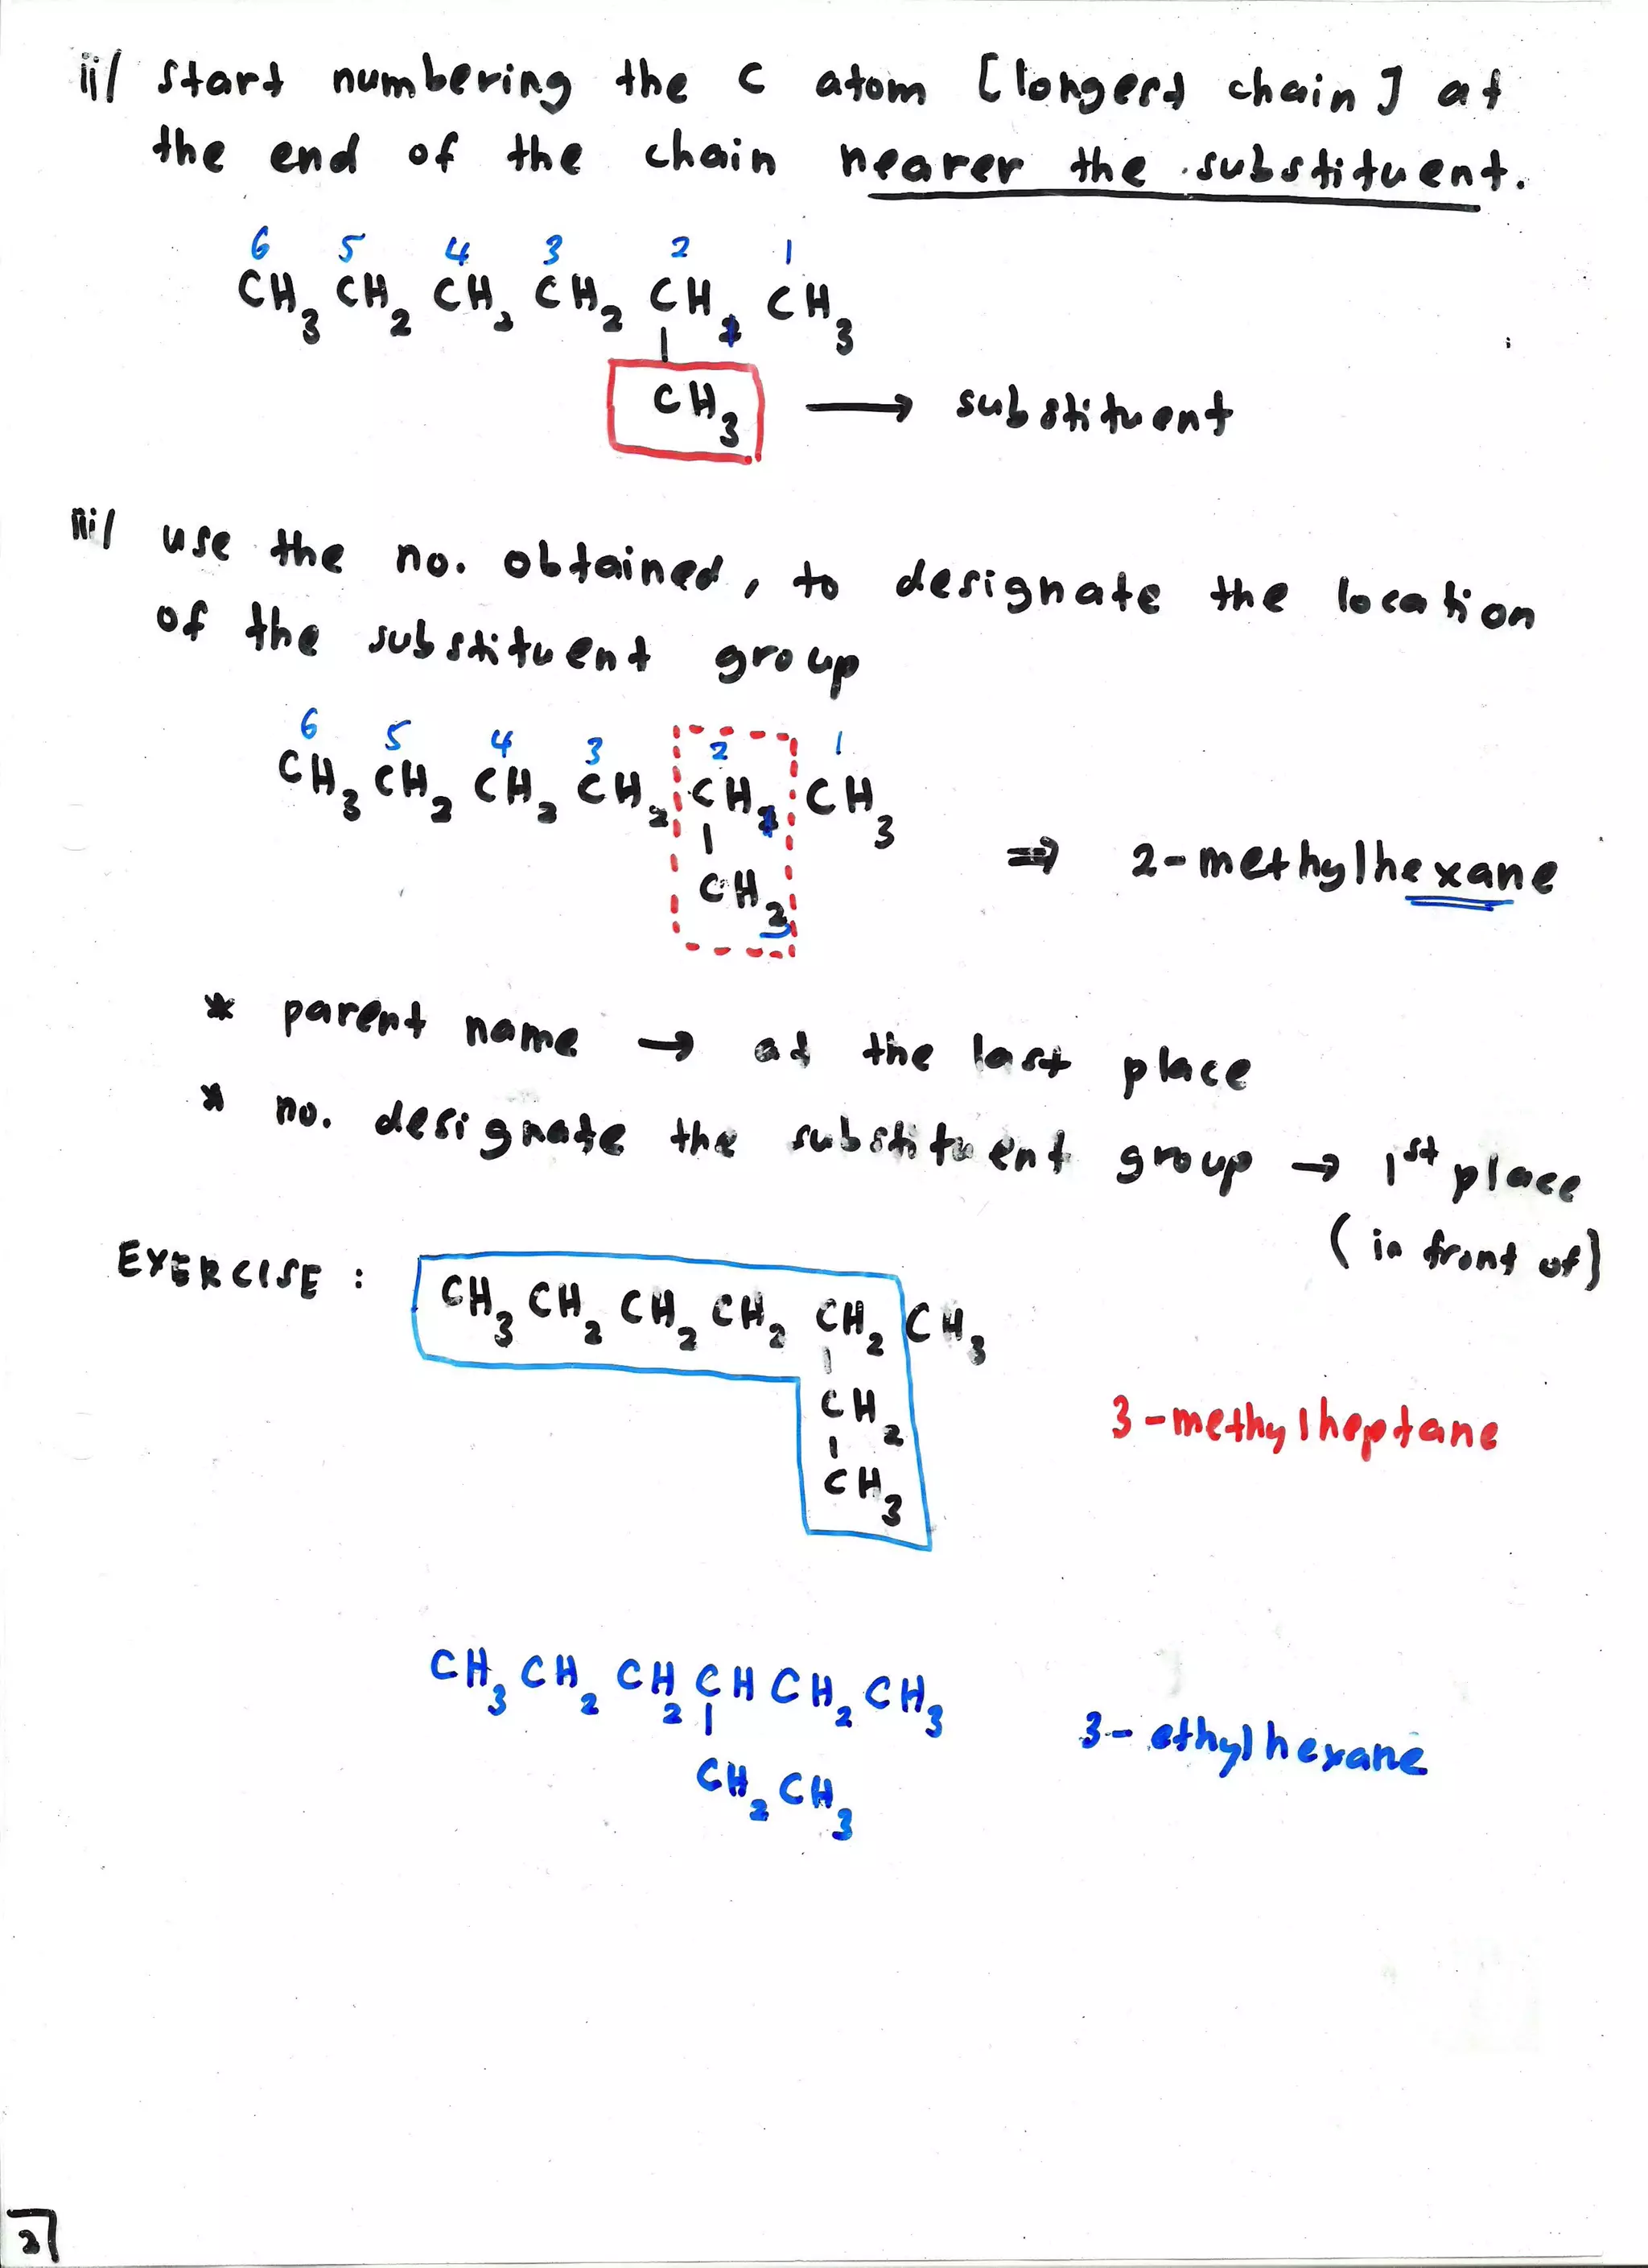 ii/ start numbering the C atom [longest chain] at
the end of the chain nearer the substituent.
6 5 4 3 2 1
CH3 CH2 CH2 CH2 CH CH3
|
CH3 → substituent
iii/ use the no. obtained, to designate the location
of the substituent group
6 5 4 3 2 1
CH3 CH2 CH2 CH2 CH CH3
|
CH3
⇒ 2-methylhexane
* parent name → at the last place
* no. designate the substituent group → 1st place
(in front of)
EXERCISE : CH3 CH2 CH2 CH2 CH2 CH3
|
CH2
|
CH3
3-methylheptane
CH3 CH2 CH2 CH CH2 CH3
|
CH2 CH3
3-ethylhexane
2